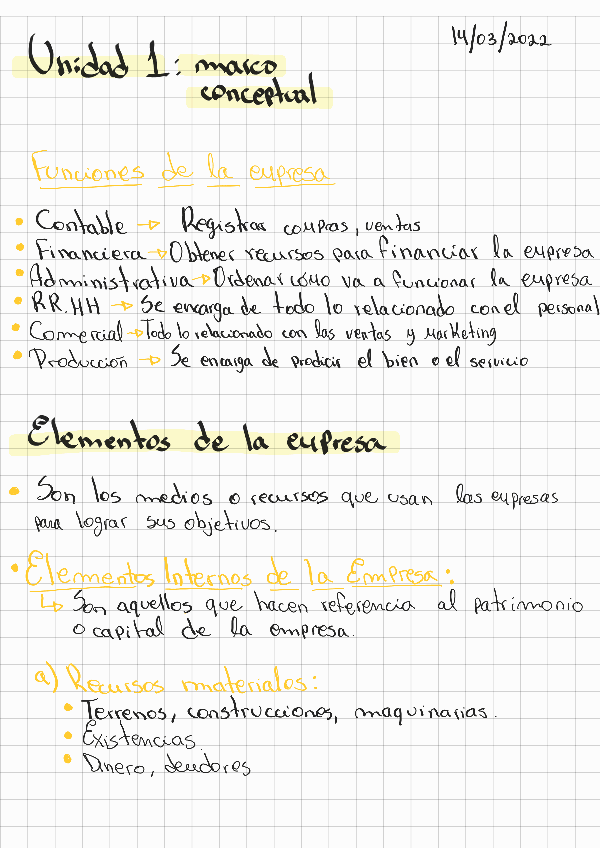 14/03/2022
Unidad 1: marco
conceptual
Funciones de la empresa
• Contable → Registrar compras, ventas
• Financiera → Obtener recursos para financiar la empresa
• Administrativa → Ordenar cómo va a funcionar la empresa
• RR.HH → Se encarga de todo lo relacionado con el personal
• Comercial → Todo lo relacionado con las ventas y Marketing
• Producción → Se encarga de producir el bien o el servicio
Elementos de la empresa
• Son los medios o recursos que usan las empresas
para lograr sus objetivos.
• Elementos Internos de la Empresa:
↳ Son aquellos que hacen referencia al patrimonio
o capital de la empresa.
a) Recursos materiales:
• Terrenos, construcciones, maquinarias.
• Existencias.
• Dinero, deudores